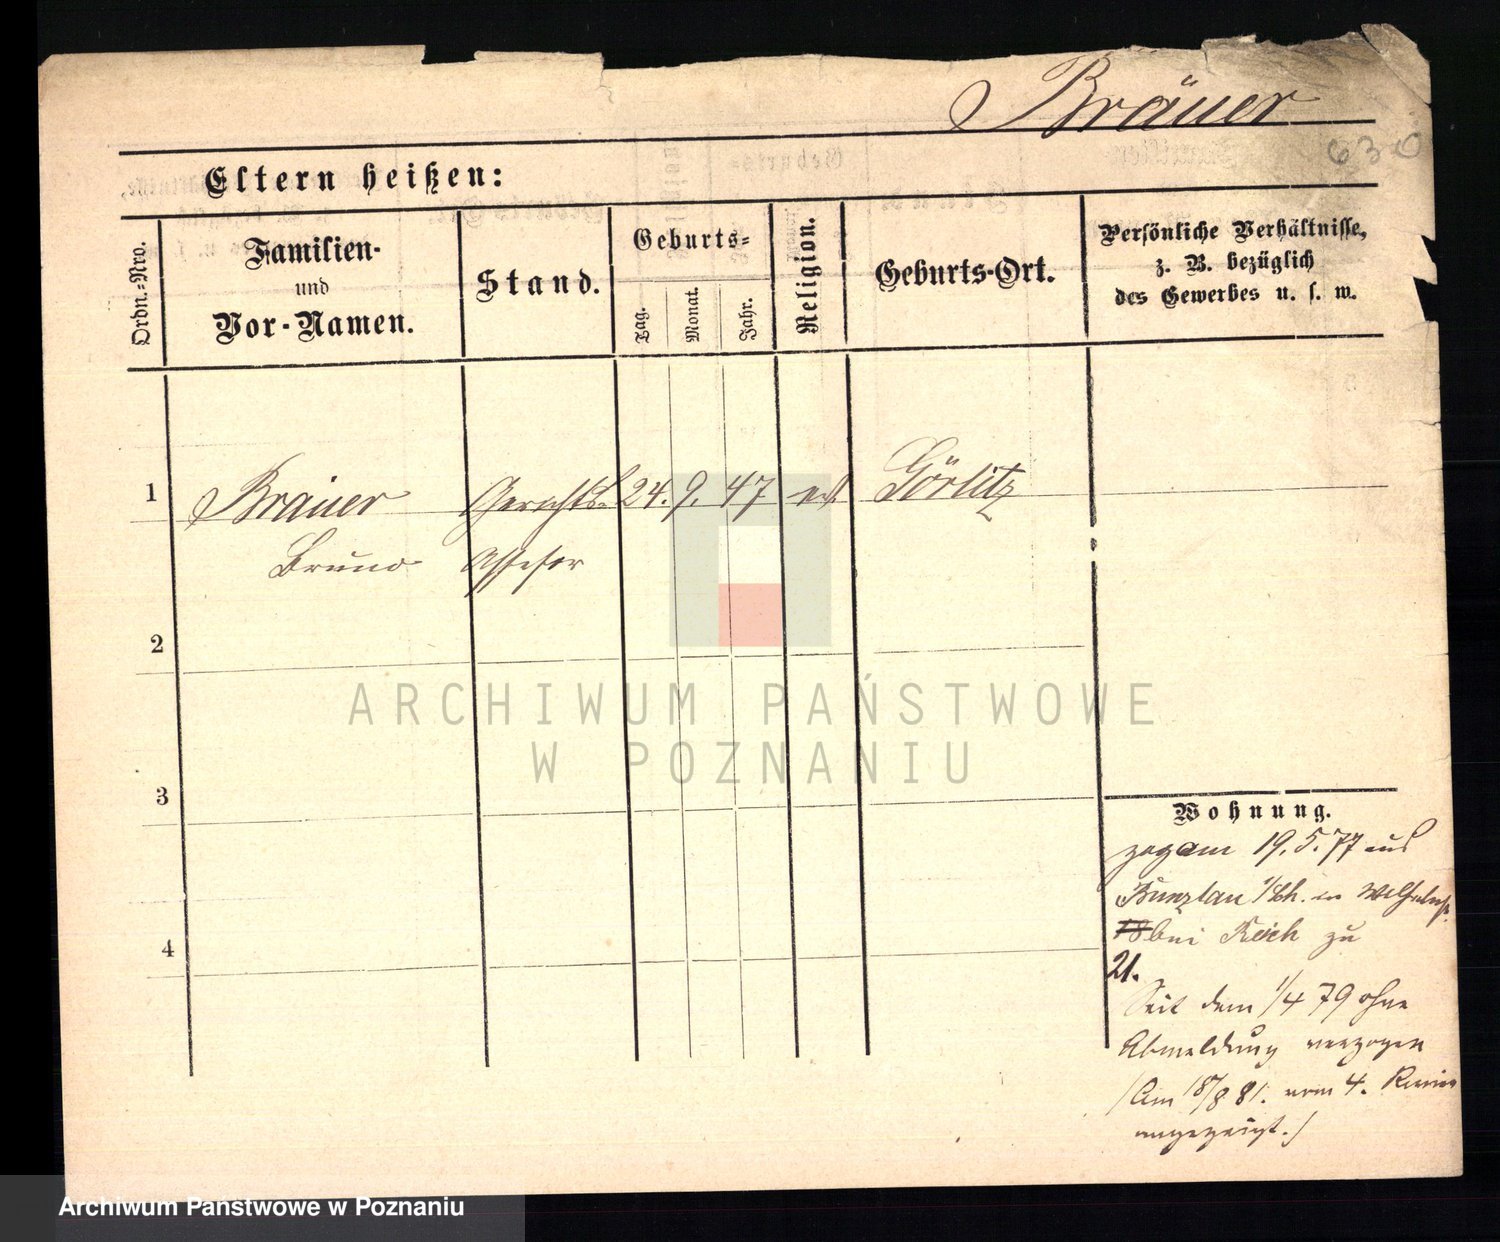 Bräuer
630
Eltern heißen:
Ordn.-Nro.
Familien-
und
Vor-Namen.
Stand.
Geburts-
Tag.
Monat.
Jahr.
Religion.
Geburts-Ort.
Persönliche Verhältnisse,
z. B. bezüglich
des Gewerbes u. s. w.
1 Bräuer Gerichts- 24. 9. 47 ev. Görlitz
Bruno Assessor
2
3
4
Wohnung.
zog am 19. 5. 77 aus
Bunzlau in Wilhelmst.
18 bei Reich zu
21.
Seit dem 1/4 79 ohne
Abmeldung verzogen
(Am 18/8 81. vom 4. Revier
angezeigt.)
ARCHIWUM PAŃSTWOWE
W POZNANIU
Archiwum Państwowe w Poznaniu